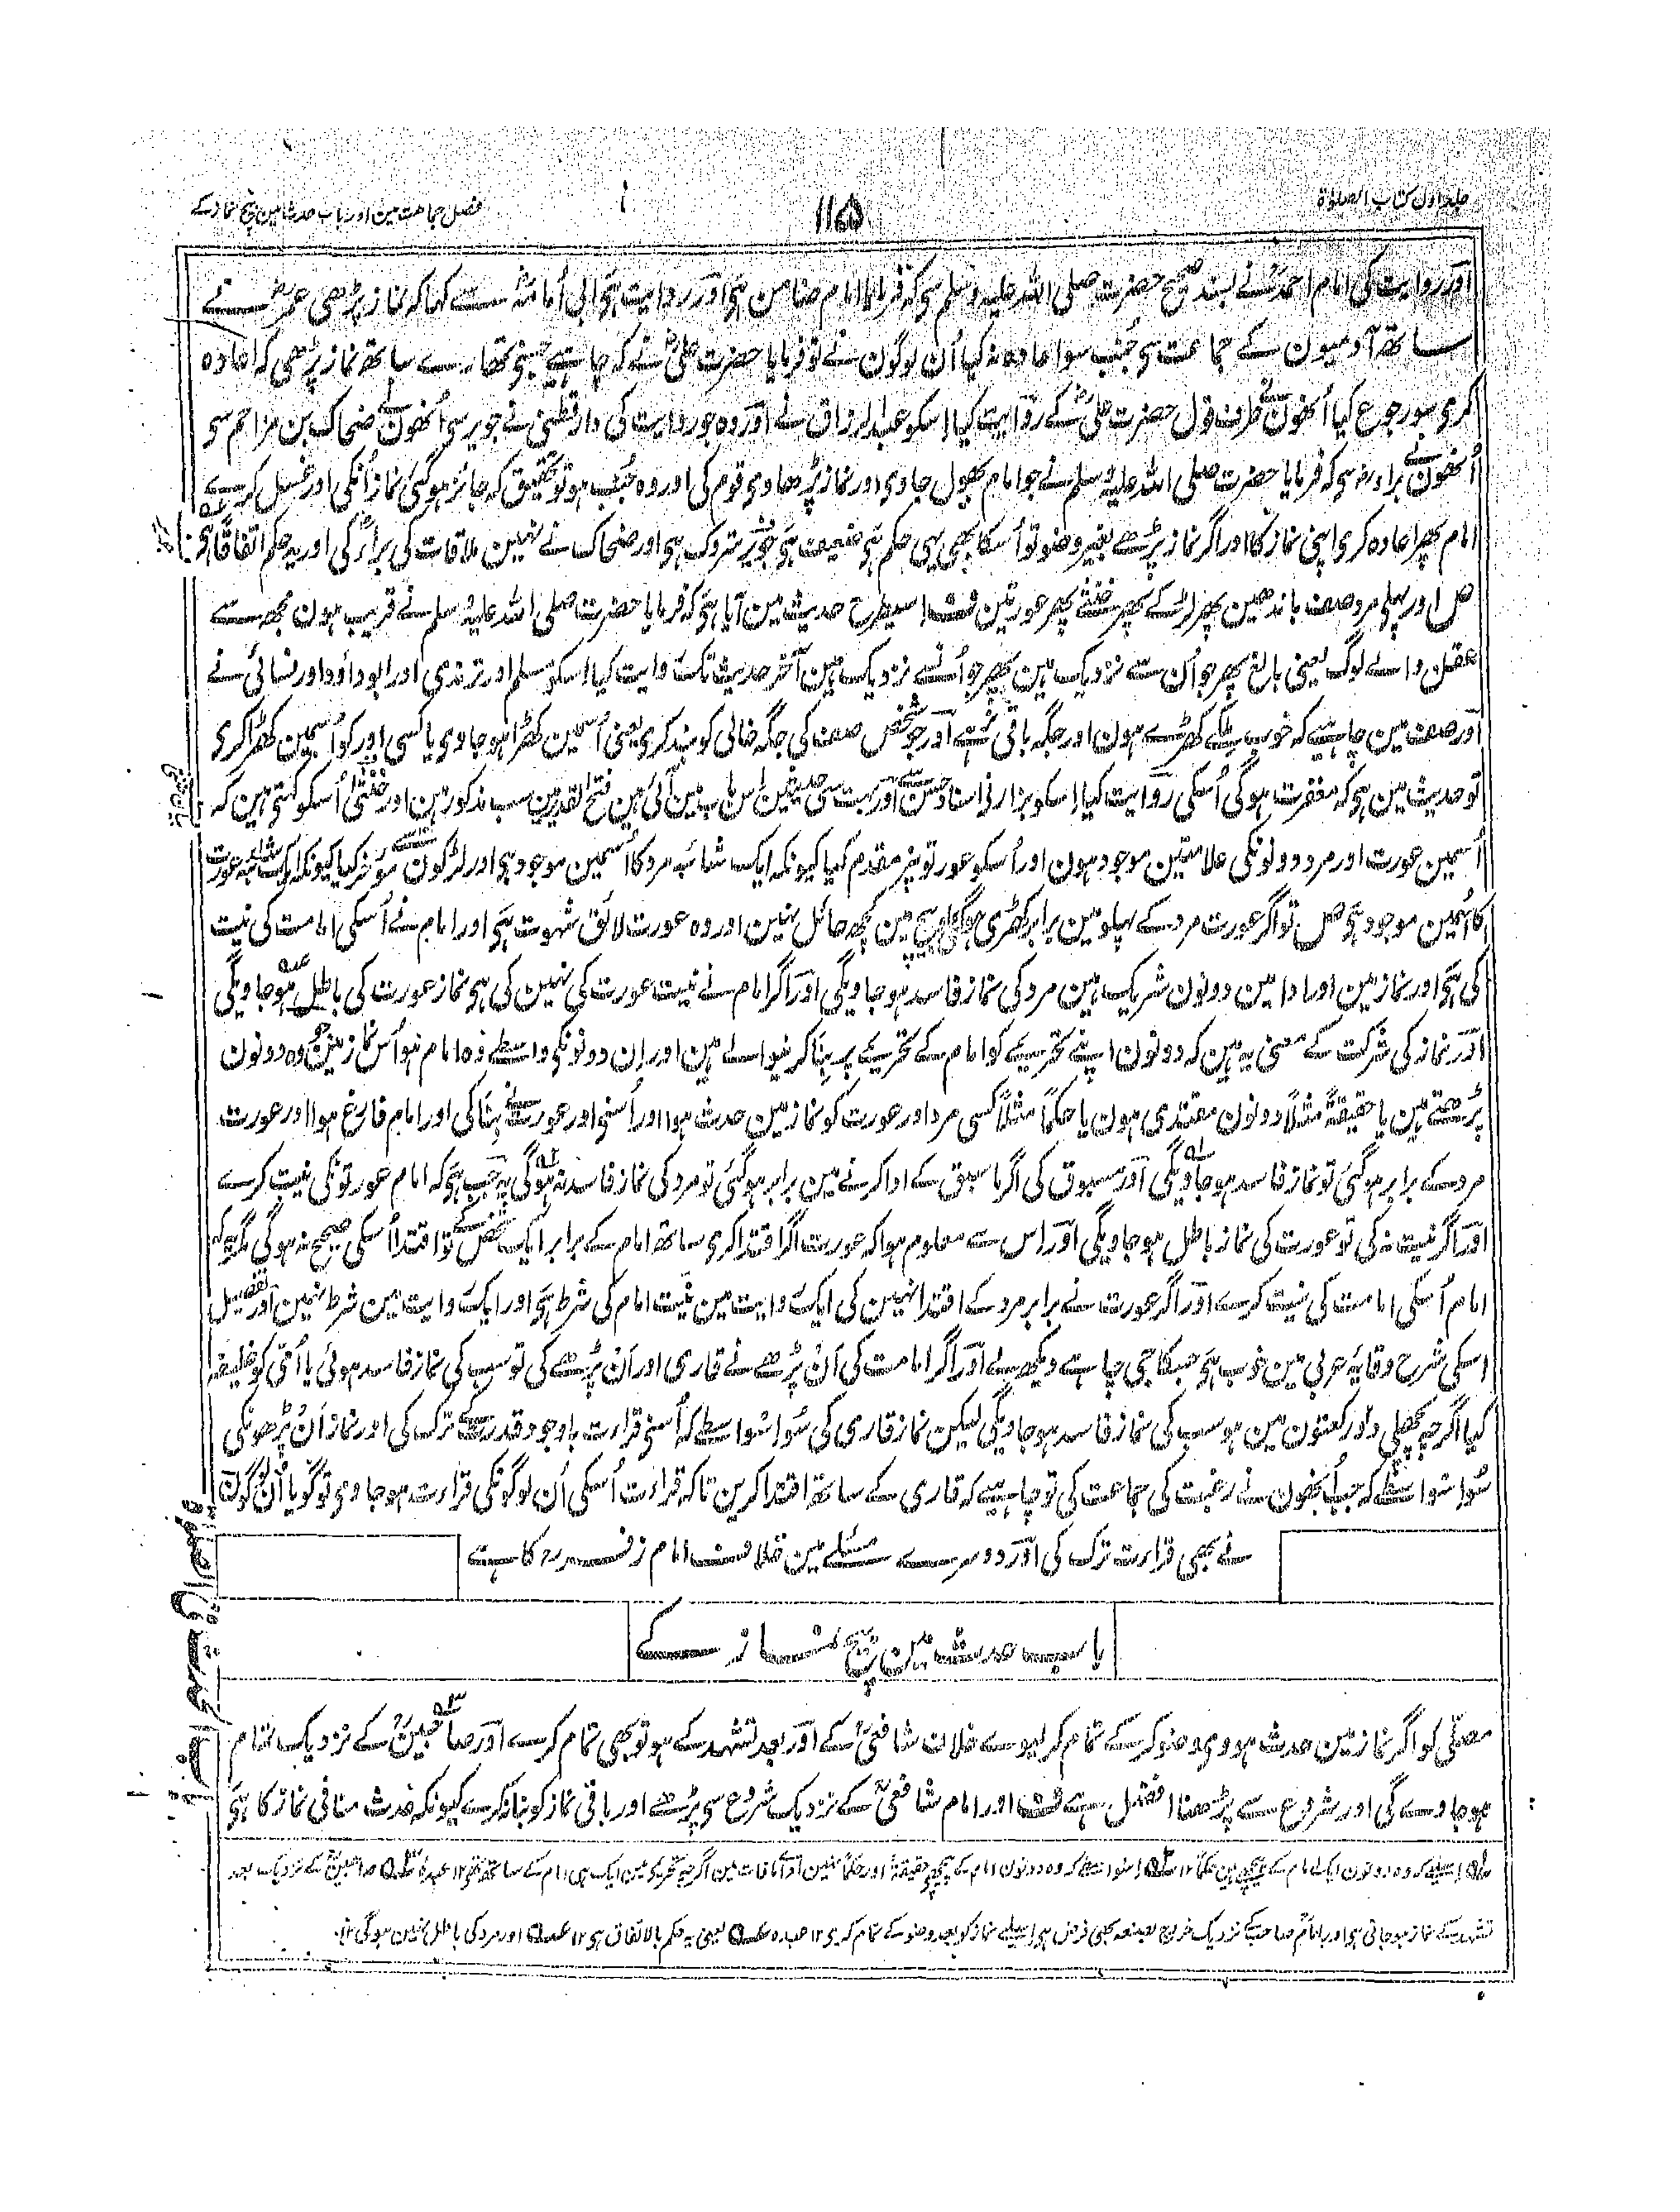 جلد اول کتاب الصلوٰۃ
۱۱۵
فصل جماعت مین اور باب حدث مین بیچ نماز کے
اور روایت کی امام احمدؒ نے بسند صحیح حضرت صلی اللہ علیہ وسلم سی کہ فرمایا امام ضامن ہی اور روایت ہی ابی اُمامہؓ سے کہا کہ نماز پڑھی عمرؓ نے
ساتھ آدمیون کے جماعت سی جُنُب سو اعادہ نہ کیا اُن لوگون نے تو فرمایا حضرت علیؓ نے کہ چاہیے جسنی تمھارے ساتھ نماز پڑھی کہ اعادہ
کری سو رجوع کیا اُنھون نے طرف قول حضرت علیؓ کے روایت کیا اِسکو عبدالرزاق نے اور وہ جو روایت کی دارقطنی نے جویبر سی اُنھون نے ضحاک بن مزاحم سی
اُنھون نے براء رضہ سی کہ فرمایا حضرت صلی اللہ علیہ وسلم نے جو امام بھول جاوی اور نماز پڑھاوی قوم کی اور وہ جُنُب ہو تو تحقیق کہ جائز ہوگئی نماز اُنکی اور غسل کرے
امام پھر اعادہ کری اپنی نماز کا اور اگر نماز پڑھے بغیر وضو تو اُسکا بھی یہی حکم ہی ضعیف ہی جویبر متروک ہی اور ضحاک نے نہین ملاقات کی براءؓ کی اور یہ حکم اتفاقاً ہی
ص اور پہلی مرد صف باندھین پھر لڑکے پھر خنثے پھر عورتین ف اسیطرح حدیث مین آیا ہی کہ فرمایا حضرت صلی اللہ علیہ وسلم نے قریب ہون مجھسے
عقل والے لوگ یعنی بالغ پھر جو اُن سے نزدیک ہین پھر جو اُنسے نزدیک ہین آخر حدیث تک روایت کیا اسکو مسلم اور ترمذی اور ابو داؤد اور نسائی نے
اور صف مین چاہیے کہ خوب ملکے کھڑے ہون اور جگہ باقی نرہے اور جو شخص صف کی جگہ خالی کو بند کری یعنی اُسمین کھڑا ہو جاوی یا کسی اور کو اُسمین کھڑا کری
تو حدیث مین ہی کہ مغفرت ہوگی اُسکی روایت کیا اِسکو بزار نی اسناد حسن سے اور بہت سی حدیثین اس باب مین آئی ہین فتح القدیر مین سب مذکور ہین اور خنثیٰ اُسکو کہتی ہین کہ
اُسمین عورت اور مرد دونونکی علامتین موجود ہون اور اُسکو عورتونپر مقدم کیا کیونکہ ایک شائبہ مرد کا اُسمین موجود ہی اور لڑکون سے مؤخر کیا کیونکہ ایک شائبہ عورت
کا اُسمین موجود ہی ص تو اگر عورت مرد کے پہلو مین برابر کھڑی ہوگی اور بیچ مین کچھ حائل نہین اور وہ عورت لائق شہوت ہی اور امام نے اُسکی امامت کی نیت
کی ہی اور نماز مین اور ادا مین دونون شریک ہین مرد کی نماز فاسد ہو جاویگی اور اگر امام نے نیت عورت کی نہین کی ہی نماز عورت کی باطل ہو جاویگی
اور نماز کی شرکت کے معنی یہ ہین کہ دونون اپنے تحریمے کو امام کے تحریمے پر بنا کرنیوالے ہین اور ان دونونکی واسطے وہ امام ہو اُس نماز مین جو وہ دونون
پڑھتے ہین یا حقیقۃً مثلاً دونون مقتدی ہون یا حکماً مثلاً کسی مرد اور عورت کو نماز مین حدث ہوا اور اُسنی اور عورت نے بنا کی اور امام فارغ ہوا اور عورت
مرد کے برابر ہوگئی تو نماز فاسد ہو جاویگی اور مسبوق کی اگر ما سبق کے ادا کرنے مین برابر ہوگئی تو مرد کی نماز فاسد نہ ہوگی یہ جب ہی کہ امام عورتونکی نیت کرے
اور اگر نیت نہ کی تو عورت کی نماز باطل ہو جاویگی اور اس سے معلوم ہوا کہ عورت اگر اقتدا کری ساتھ امام کے برابر ایک شخص کے تو اقتدا اُسکی صحیح نہ ہوگی مگر یہ کہ
امام اُسکی امامت کی نیت کرے اور اگر عورت نے برابر مرد کے اقتدا نہین کی ایک روایت مین نیت امام کی شرط ہی اور ایک روایت مین شرط نہین اور تفصیل
اسکی شرح وقایہ عربی مین خوب ہی جسکا جی چاہے دیکھ لے اور اگر امامت کی اَن پڑھے نے قاری اور اَن پڑھے کی تو سب کی نماز فاسد ہوئی یا اُمّی کو خلیفہ
کیا اگرچہ پچھلی دو رکعتون مین ہو سب کی نماز فاسد ہو جاویگی لیکن نماز قاری کی سو اسواسطے کہ اُسنی قراءت باوجود قدرت کے ترک کی اور نماز اَن پڑھونکی
سو اسواسطے کہ جب اُنھون نے رغبت کی جماعت کی تو چاہیے کہ قاری کے ساتھ اقتدا کرین تاکہ قراءت اُسکی اُن لوگونکی قراءت ہو جاوی تو گویا اُن لوگون
نے بھی قراءت ترک کی اور دوسرے مسئلے مین خلاف امام زفر رہ کا ہے
باب حدث مین بیچ نماز کے
مصلّی کو اگر نماز مین حدث ہووی وضو کرکے تمام کر لیوے خلاف شافعیؒ کے اور بعد تشہد کے ہو تو بھی تمام کرے اور صاحبینؒ کے نزدیک تمام
ہو جاوے گی اور شروع سے پڑھنا افضل ہے ف اور امام شافعیؒ کے نزدیک شروع سی پڑھے اور باقی نماز کو بنا نہ کرے کیونکہ حدث منافی نماز کا ہی
اسلیے کہ وہ دونون ایک امام کے پیچھے ہین حکماً ۱۲ اسواسطے کہ وہ دونون امام کے پیچھے حقیقۃً اور حکماً نہین ادائے مافات مین اگرچہ تحریمی مین ایک ہی امام کے ساتھ تھی ۱۲ عبدہ صاحبینؒ کے نزدیک بعد
تشہد کے نماز ہو جاتی ہی اور امام صاحب کے نزدیک خروج بصنعہ بھی فرض ہی اسلیے نماز کو بعد وضو کے تمام کری ۱۲ عبدہ یعنی یہ حکم بالاتفاق ہی ۱۲ اور مرد کی باطل نہین ہوگی ۱۲